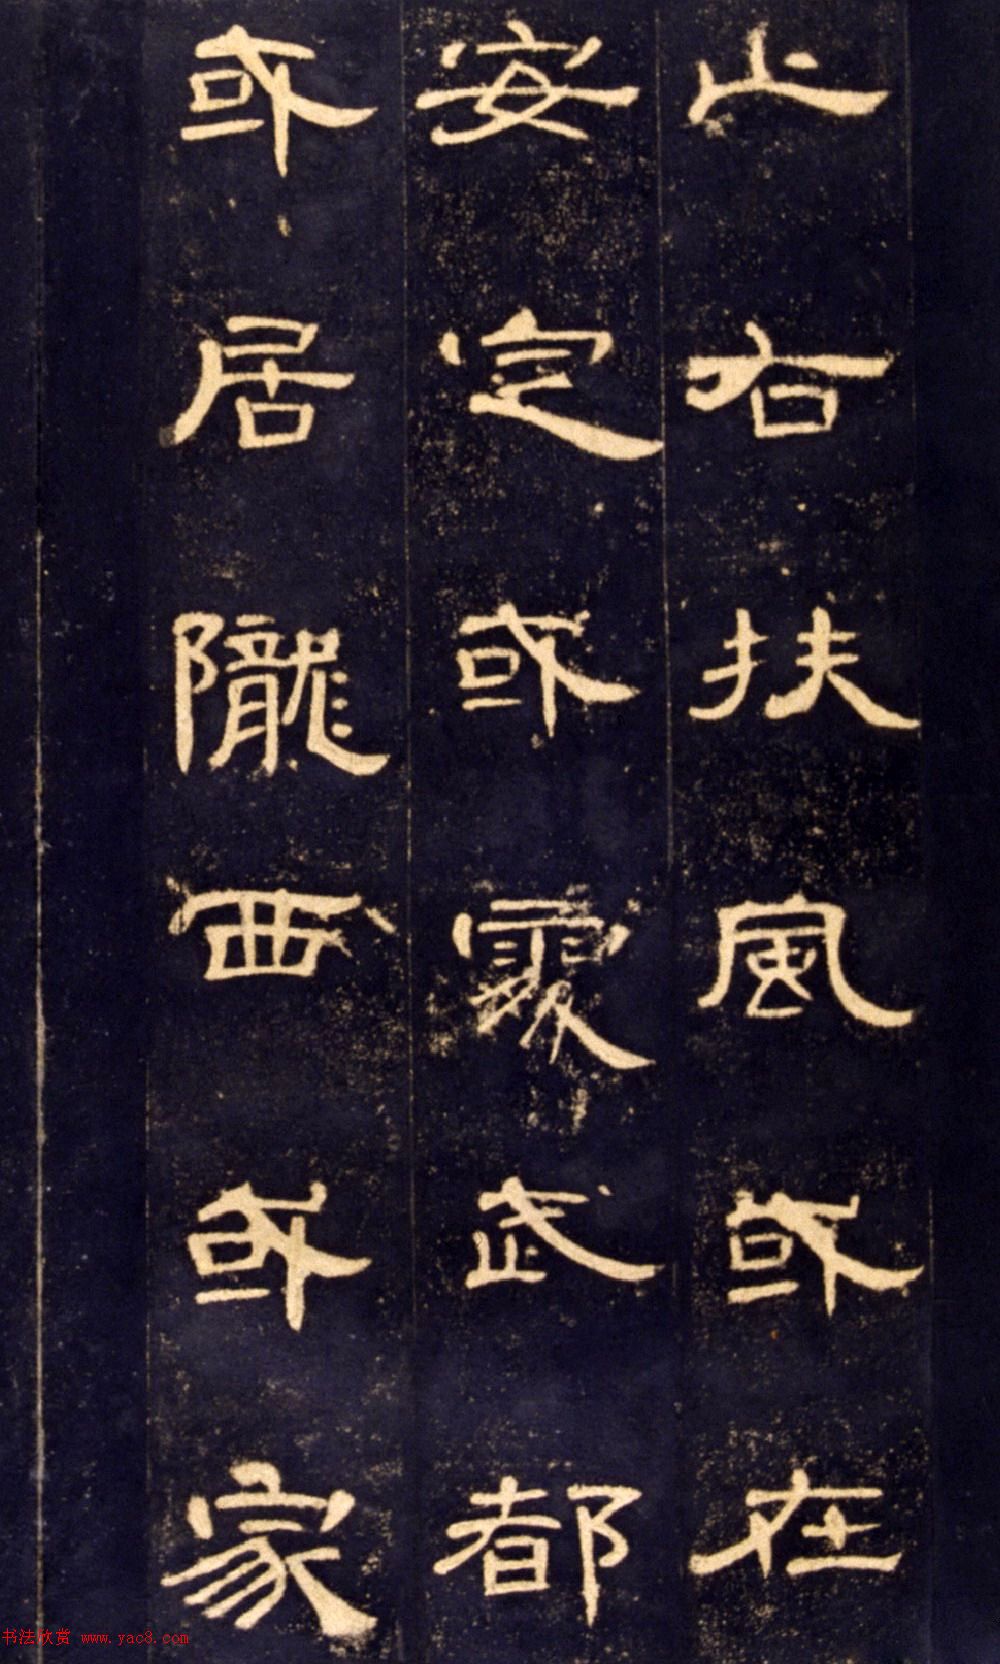 止右扶風或在
安定或處武都
或居隴西或家
书法欣赏 www.yac8.com